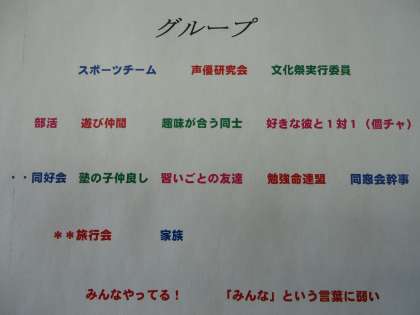 グループ
スポーツチーム　声優研究会　文化祭実行委員
部活　遊び仲間　趣味が合う同士　好きな彼と１対１（個チャ）
・・同好会　塾の子仲良し　習いごとの友達　勉強命連盟　同窓会幹事
＊＊旅行会　家族
みんなやってる！　「みんな」という言葉に弱い